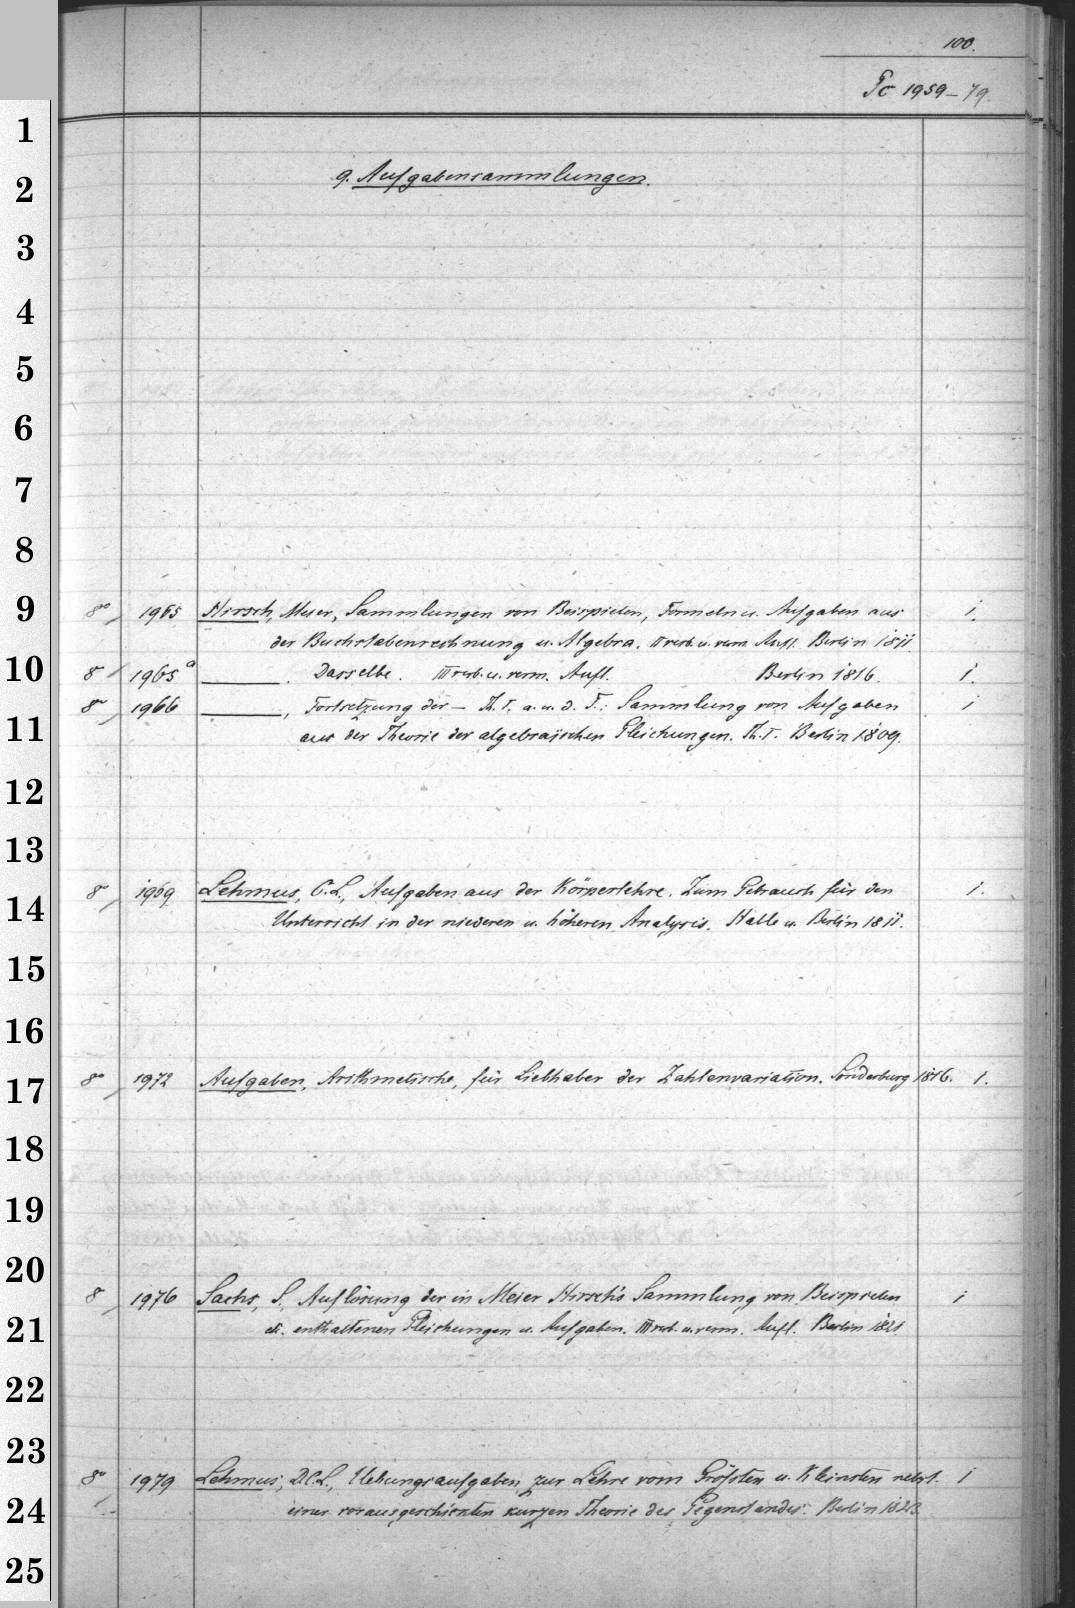 100.
Pc 1959-79.
1
9. Aufgabensammlungen.
2
3
4
5
6
7
8
9
8° 1965 Hirsch, Meier, Sammlungen von Beispielen, Formeln u. Aufgaben aus 1.
der Buchstabenrechnung u. Algebra. II verb. u. verm. Aufl. Berlin 1811.
10
8° 1965a ———. Dasselbe. III verb. u. verm. Aufl. Berlin 1816. 1.
8° 1966 ———, Fortsetzung der — Th. I. a. u. d. T.: Sammlung von Aufgaben 1
11
aus der Theorie der algebraischen Gleichungen. Th. I. Berlin 1809.
12
13
8° 1969 Lehmus, C.L., Aufgaben aus der Körperlehre. Zum Gebrauch für den 1.
14
Unterricht in der niederen u. höheren Analysis. Halle u. Berlin 1811.
15
16
8° 1972 Aufgaben, Arithmetische, für Liebhaber der Zahlenvariation. Sonderburg 1816. 1.
17
18
19
20
8° 1976 Sachs, S., Auflösung der in Meier Hirsch's Sammlung von Beispielen 1
21
etc. enthaltenen Gleichungen u. Aufgaben. III verb. u. verm. Aufl. Berlin 1821
22
23
8° 1979 Lehmus, D.C.L., Uebungsaufgaben zur Lehre vom Größten u. Kleinsten nebst 1
24
einer vorausgeschickten kurzen Theorie des Gegenstandes. Berlin 1823.
25